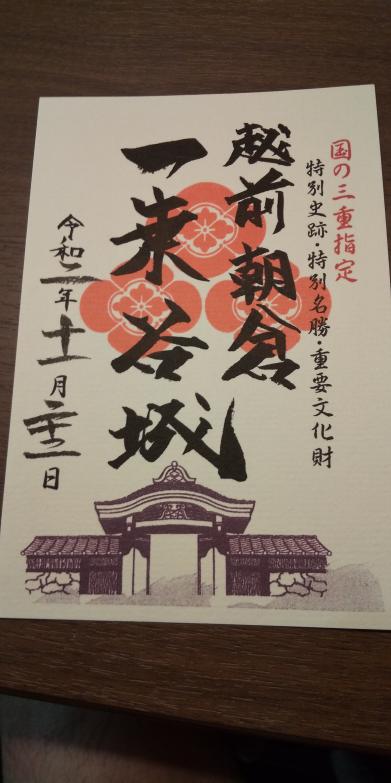 国の三重指定
特別史跡・特別名勝・重要文化財
越前朝倉
一乗谷城
令和二年十一月二十二日